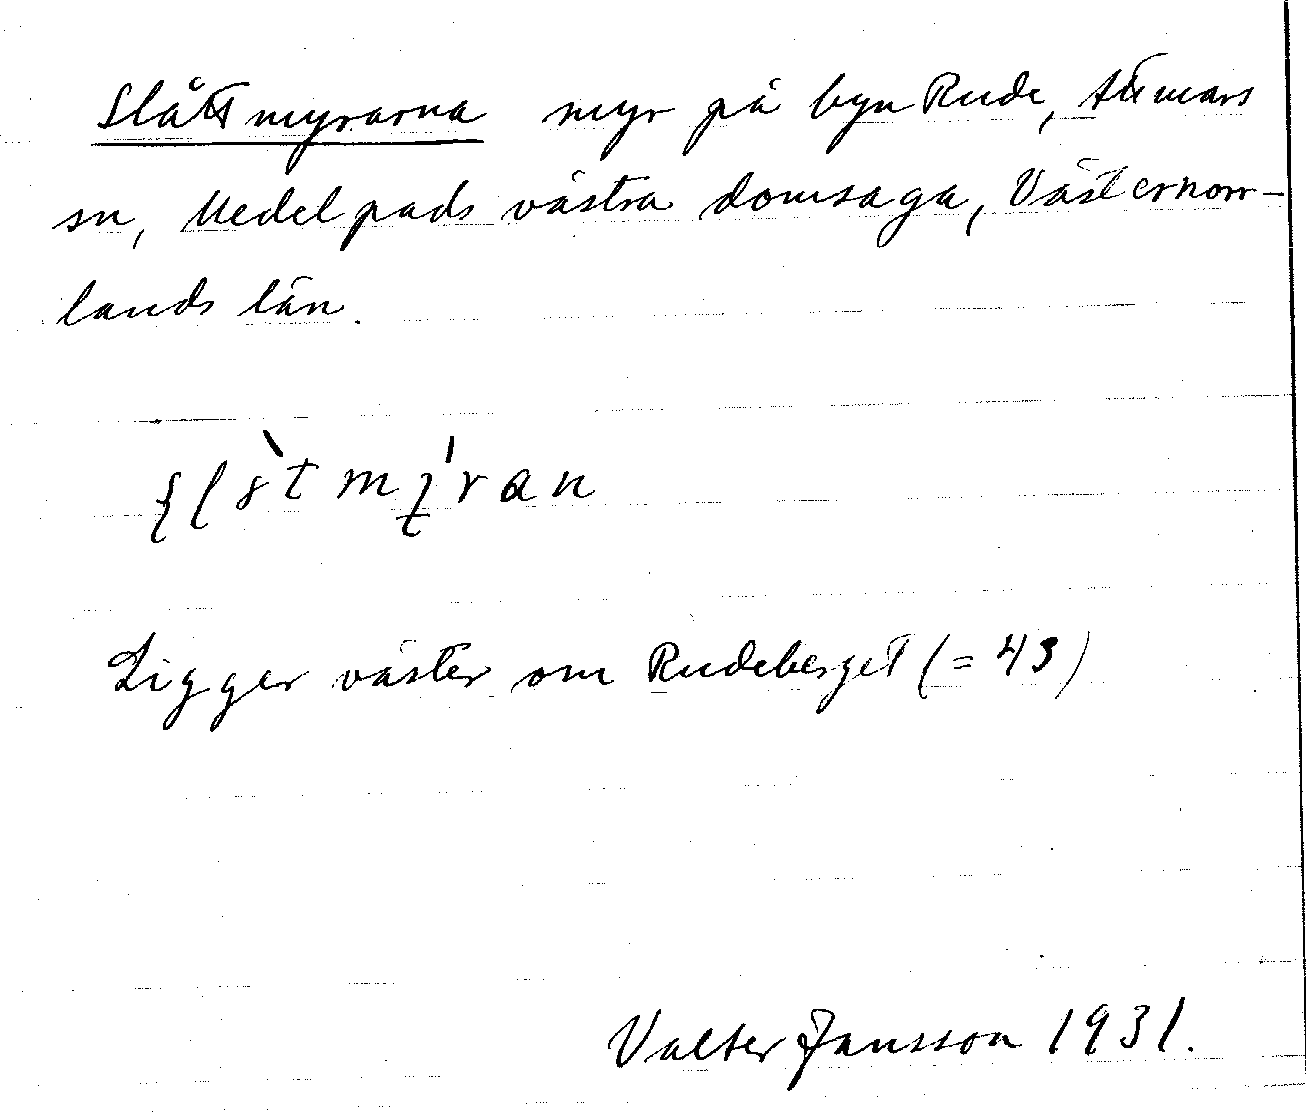 Slåttmyrarna myr på byn Rude, Attmars
sn, Medelpads västra domsaga, Västernorr-
lands län.
Ligger väster om Rudeberget (= 43)
Valter Jansson 1931.